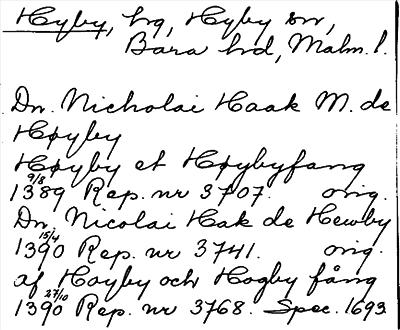 Hyby, hg, Hyby sn,
Bara hd, Malm. l.
Dn. Nicholai Haak M. de
Høyby
Høyby et Høybyfang
9/8
1389 Rep. nr 3707. orig.
Dn. Nicolai Hak de Hewby
15/4
1390 Rep. nr 3741. orig.
af Hoyby och Hogby fång
27/10
1390 Rep. nr 3768. Spec. 1693